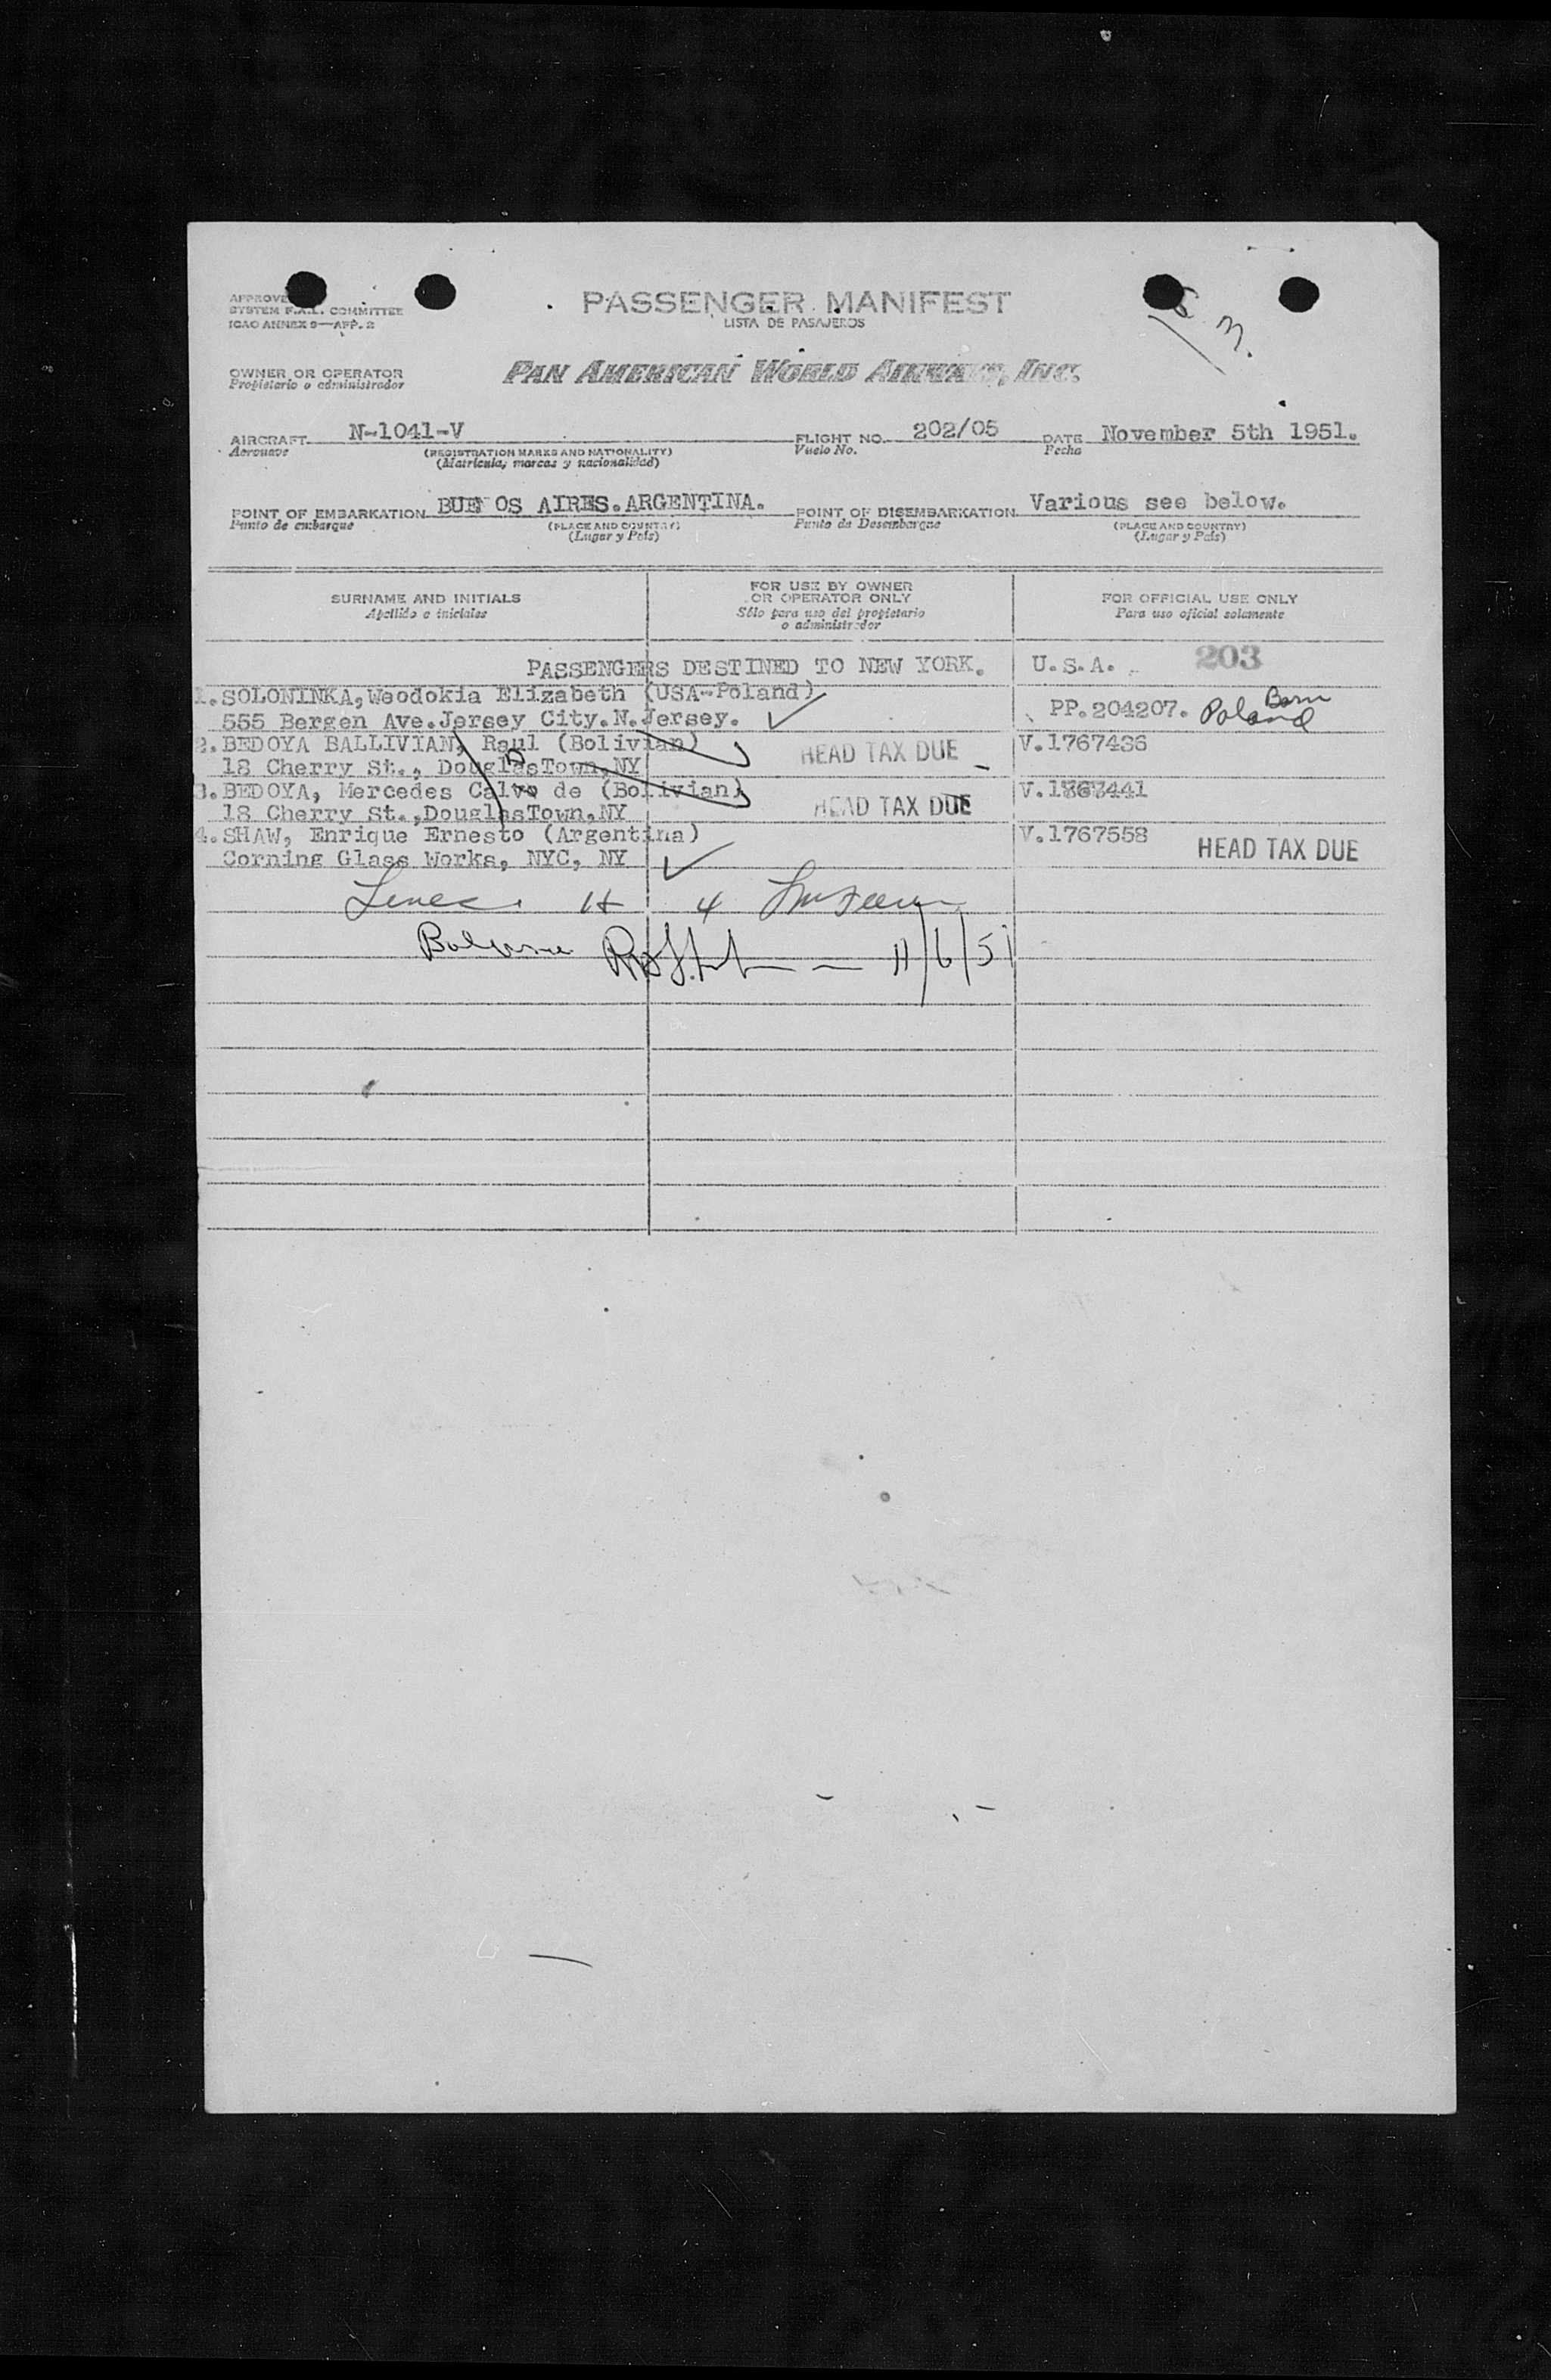 PASSENGER MANIFEST
LISTA DE PASAJEROS
SYSTEM F.A.L. COMMITTEE
ICAO ANNEX 9—APP. 2
OWNER OR OPERATOR
Propietario o administrador
PAN AMERICAN WORLD AIRWAYS, INC.
AIRCRAFT N-1041-V FLIGHT NO. 202/05 DATE November 5th 1951.
Aeronave (REGISTRATION MARKS AND NATIONALITY) Vuelo No. Fecha
(Matrícula, marcas y nacionalidad)
POINT OF EMBARKATION BUENOS AIRES.ARGENTINA. POINT OF DISEMBARKATION Various see below.
Punto de embarque (PLACE AND COUNTRY) Punto de Desembarque (PLACE AND COUNTRY)
(Lugar y País) (Lugar y País)
SURNAME AND INITIALS
Apellido e iniciales
FOR USE BY OWNER
OR OPERATOR ONLY
Sólo para uso del propietario
o administrador
FOR OFFICIAL USE ONLY
Para uso oficial solamente
PASSENGERS DESTINED TO NEW YORK. U.S.A. 203
1.SOLONINKA,Weodokia Elizabeth (USA-Poland)
555 Bergen Ave.Jersey City.N.Jersey. PP.204207. Born Poland
2.BEDOYA BALLIVIAN, Raul (Bolivian) HEAD TAX DUE V.1767436
18 Cherry St., DouglasTown,NY
3.BEDOYA, Mercedes Calvo de (Bolivian) HEAD TAX DUE
18 Cherry St.,DouglasTown,NY
4.SHAW, Enrique Ernesto (Argentina) V.1767558 HEAD TAX DUE
Corning Glass Works, NYC, NY
4
11/6/51